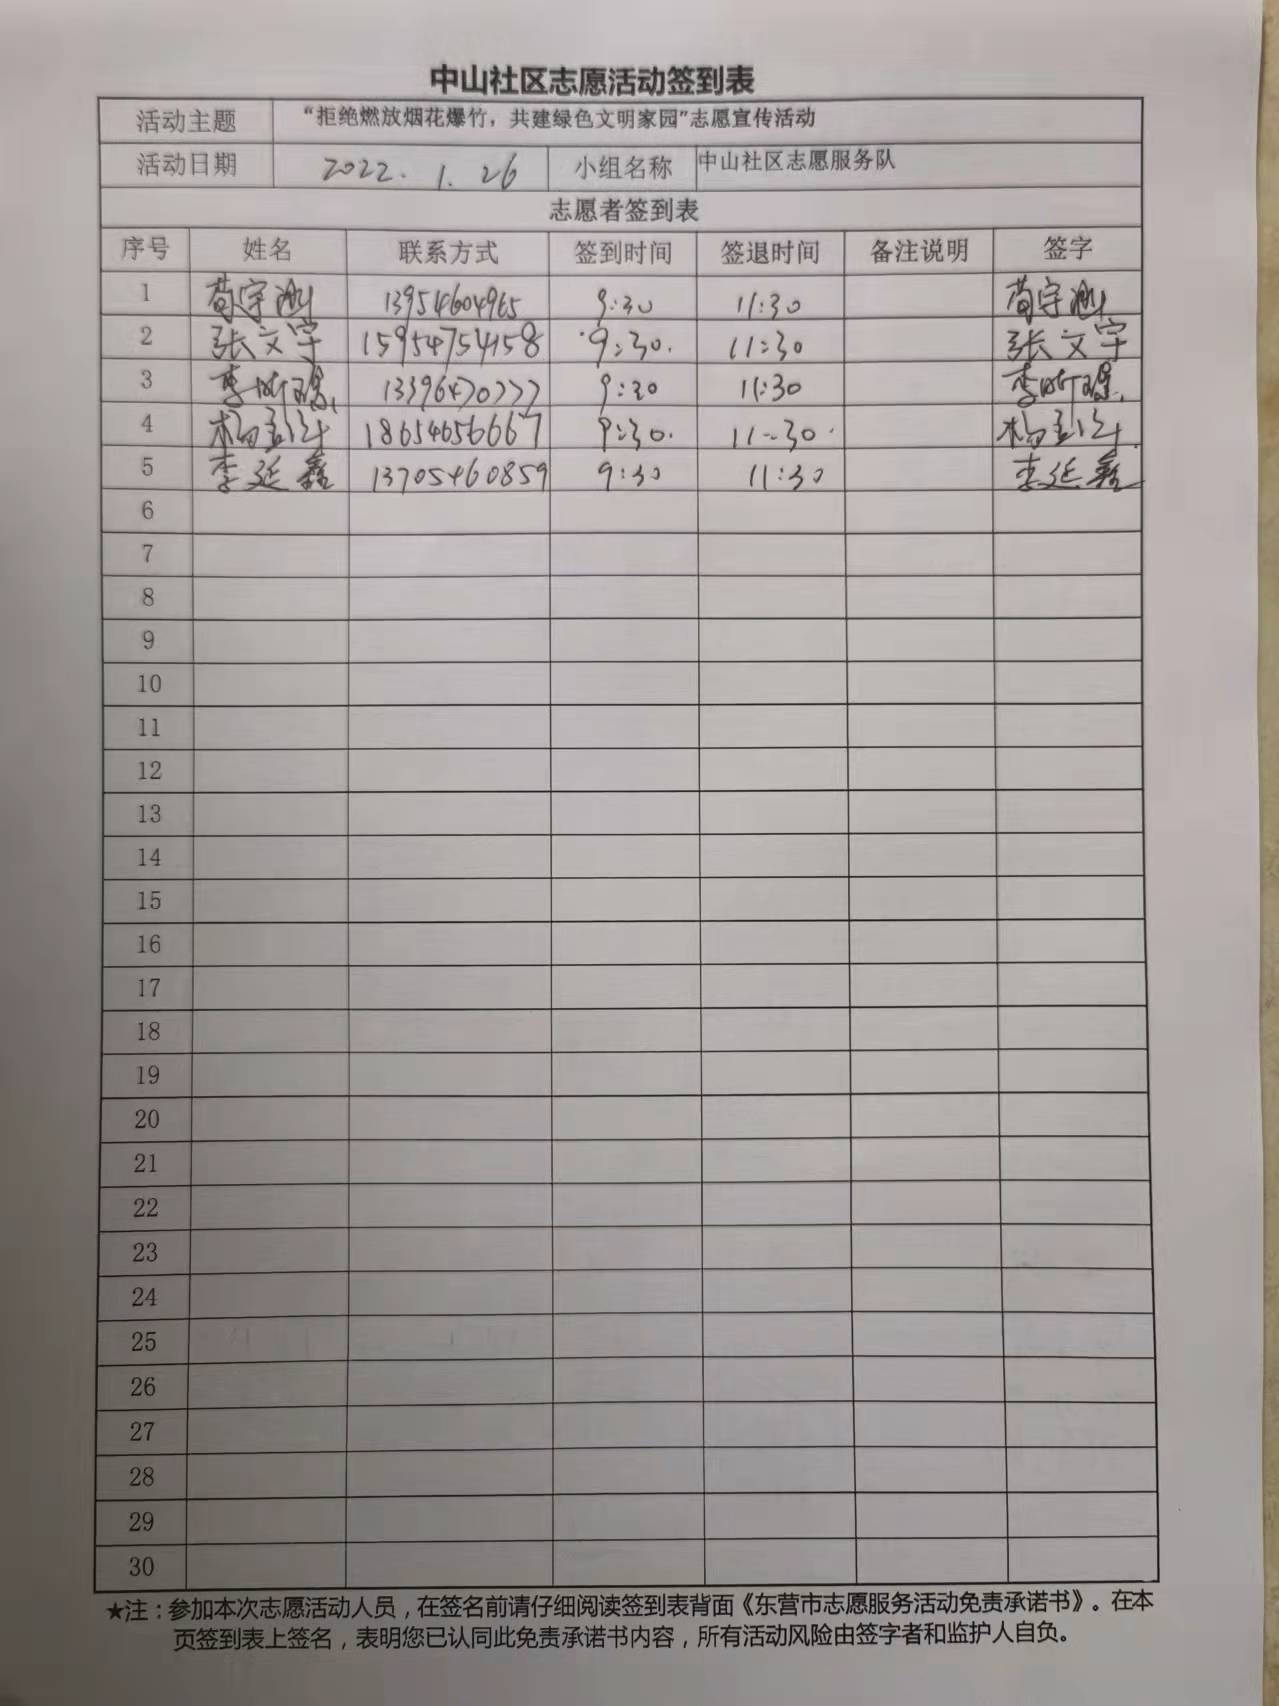 中山社区志愿活动签到表
活动主题 “拒绝燃放烟花爆竹，共建绿色文明家园”志愿宣传活动
活动日期 2022.1.26 小组名称 中山社区志愿服务队
志愿者签到表
序号 姓名 联系方式 签到时间 签退时间 备注说明 签字
1 13954604965 9:30 11:30
2 张文宇 15954754158 9:30. 11:30 张文宇
3 13396470777 9:30 11:30
4 18654656667 9:30. 11:30.
5 李延鑫 13705460859 9:30 11:30 李延鑫
6
7
8
9
10
11
12
13
14
15
16
17
18
19
20
21
22
23
24
25
26
27
28
29
30
★注：参加本次志愿活动人员，在签名前请仔细阅读签到表背面《东营市志愿服务活动免责承诺书》。在本
页签到表上签名，表明您已认同此免责承诺书内容，所有活动风险由签字者和监护人自负。